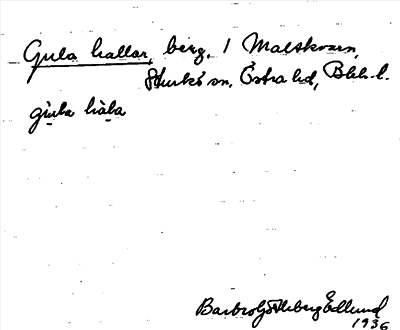 Gula hallar, berg. 1 Malskvarn,
Sturkö sn, Östra hd, Blek. l.
gu̱la ha̱la
Barbro Göthberg Edlund
1936